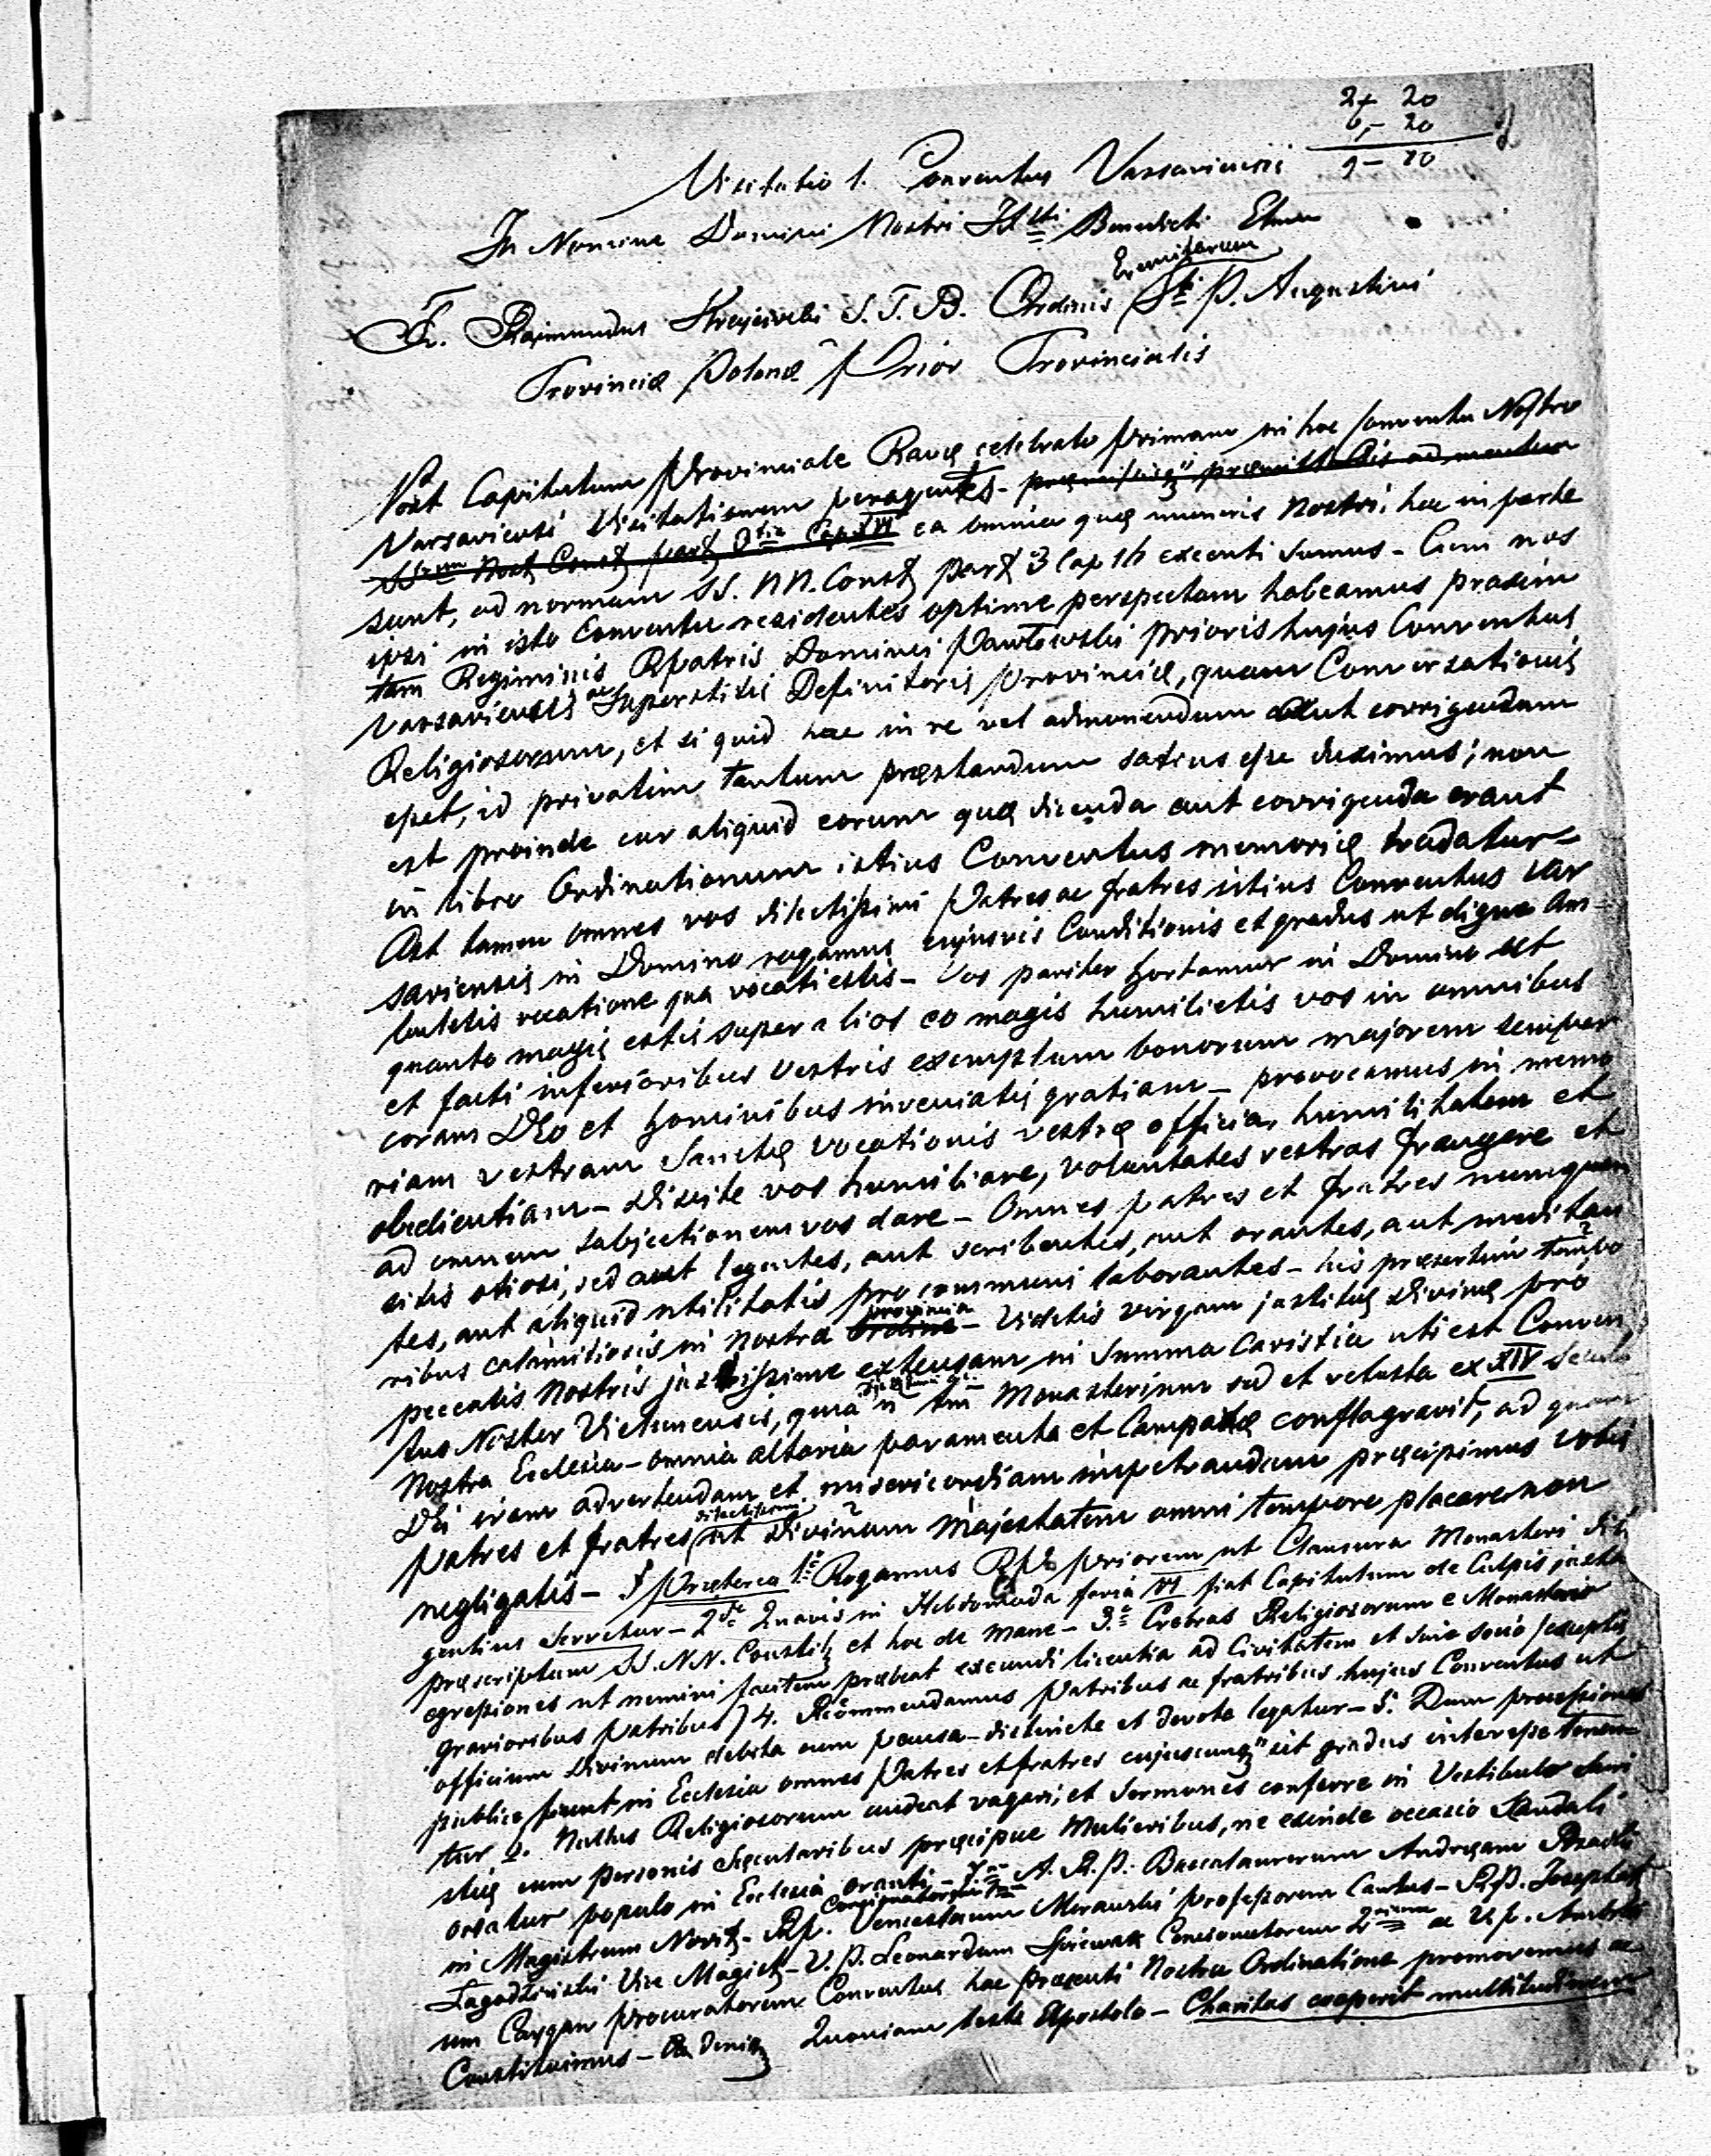 2+ 20
6,- 20
9- 10
Visitatio 1. Conventus Varsaviensis
In Nomine Domini Nostri Benedicti Etmen
Eremitarum
Fr. Raimundus S. T. B. Ordinis Sti P. Augustini
Provinciæ Polonæ Prior Provincialis
Post Capitulum Provinciale Ravæ celebrato primam in hoc Conventu Nostro
Varsaviensi Visitationem peragentes -
ea omnia quæ muneris Nostri hac in parte
sunt, ad normam SS. NN. Constq partq 3 Cap 16 executi sumus - Cum nos
ipsi in isto Conventu residentes optime perspectam habeamus praxim
tam Regiminis RPatris Dominici Pawłowski prioris hujus Conventus
Varsaviensis ac Superstitis Definitoris Provinciæ, quam Conversationis
Religiosorum, et si quid hac in re vel admonendum aut corrigendum
eßet, id privatim tantum præstandum satius eße duximus; non
est proinde cur aliquid eorum quæ dicenda aut corrigenda erant
in libro Ordinationum istius Conventus memoriæ tradatur -
Ast tamen omnes vos dilectißimi Patres ac fratres istius Conventus Var
saviensis in Domino rogamus cujusvis Conditionis et gradus ut digne Am-
buletis vocatione qua vocati estis - Vos pariter hortamur in Domino ut
quanto magis estis super alios eo magis humilietis vos in omnibus
et facti inferioribus vestris exemplum bonorum majorem semper
coram DEo et hominibus inveniatis gratiam - provocamus in memo
riam vestram Sanctæ vocationis vestræ officia, humilitatem et
obedientiam - Discite vos humiliare, voluntates vestras frangere et
ad omnem subjectionem vos dare - Omnes patres et fratres numquam
sitis otiosi, sed aut legentes, aut scribentes, aut orantes, aut meditan
tes, aut aliquid utilitatis pro communi laborantes - his præsertim tempo
ribus calamitiosis in nostra provincia - Videtis virgam justitiæ Divinæ pro
peccatis Nostris justißime extensam in Summa Caristia uti est Conven
tus Noster Vielunensis, quia n tm Monasterium sed et vetusta ex XIV Seculo
Nostra Ecclesia - omnia altaria paramenta et Campanæ conflagravit, ad quam
DEi iram advertendam et misericordiam impetrandam præcipimus vobis
Patres et fratres dilectißimi ut Divinam Majestatem omni tempore placare non
negligatis - Præterea 1º Rogamus RP Priorem ut Clausura Monasteri dili
gentius Servetur - 2do Quavis in Hebdomada feria VI fiat Capitulum de Culpis juxta
præscriptum SS. NN. Constitq et hoc de mane - 3º Crebras Religiosorum e Monasterio
egreßiones ut nemini facitem præbeat exeundi licentia ad Civitatem et sine socio (exceptis
gravioribus Patribus) 4. Recommendamus Patribus ac fratribus hujus Conventus ut
officium Divinum debita cum pausa - distincte et devote legatur - 5. Dum proceßiones
publice fiunt in Ecclesia omnes Patres et fratres cujuscunq sit gradus intereße tenean-
tur 6. Nullus Religiosorum audeat vagari, et Sermones conferre in Vestibulo
cum personis Sæcularibus præcipue Mulieribus, ne exinde occasio Scandali
oriatur populo in Ecclesia oranti - 7mo A. R. P. Baccalaureum Andream
in Magistrum Novitq - Rp. Concionatorem Venceslaum Morawski profeßorem Cantus - RP. Josephum
Łagodzinski Vice Magistq - V. P. Leonardum Concionatorem 2rium ac V. p.
um procuratorem Conventus hac præsenti Nostra Ordinatione promovemus ac
Constituimus - Quoniam teste Apostolo - Charitas cooperit multitudinem